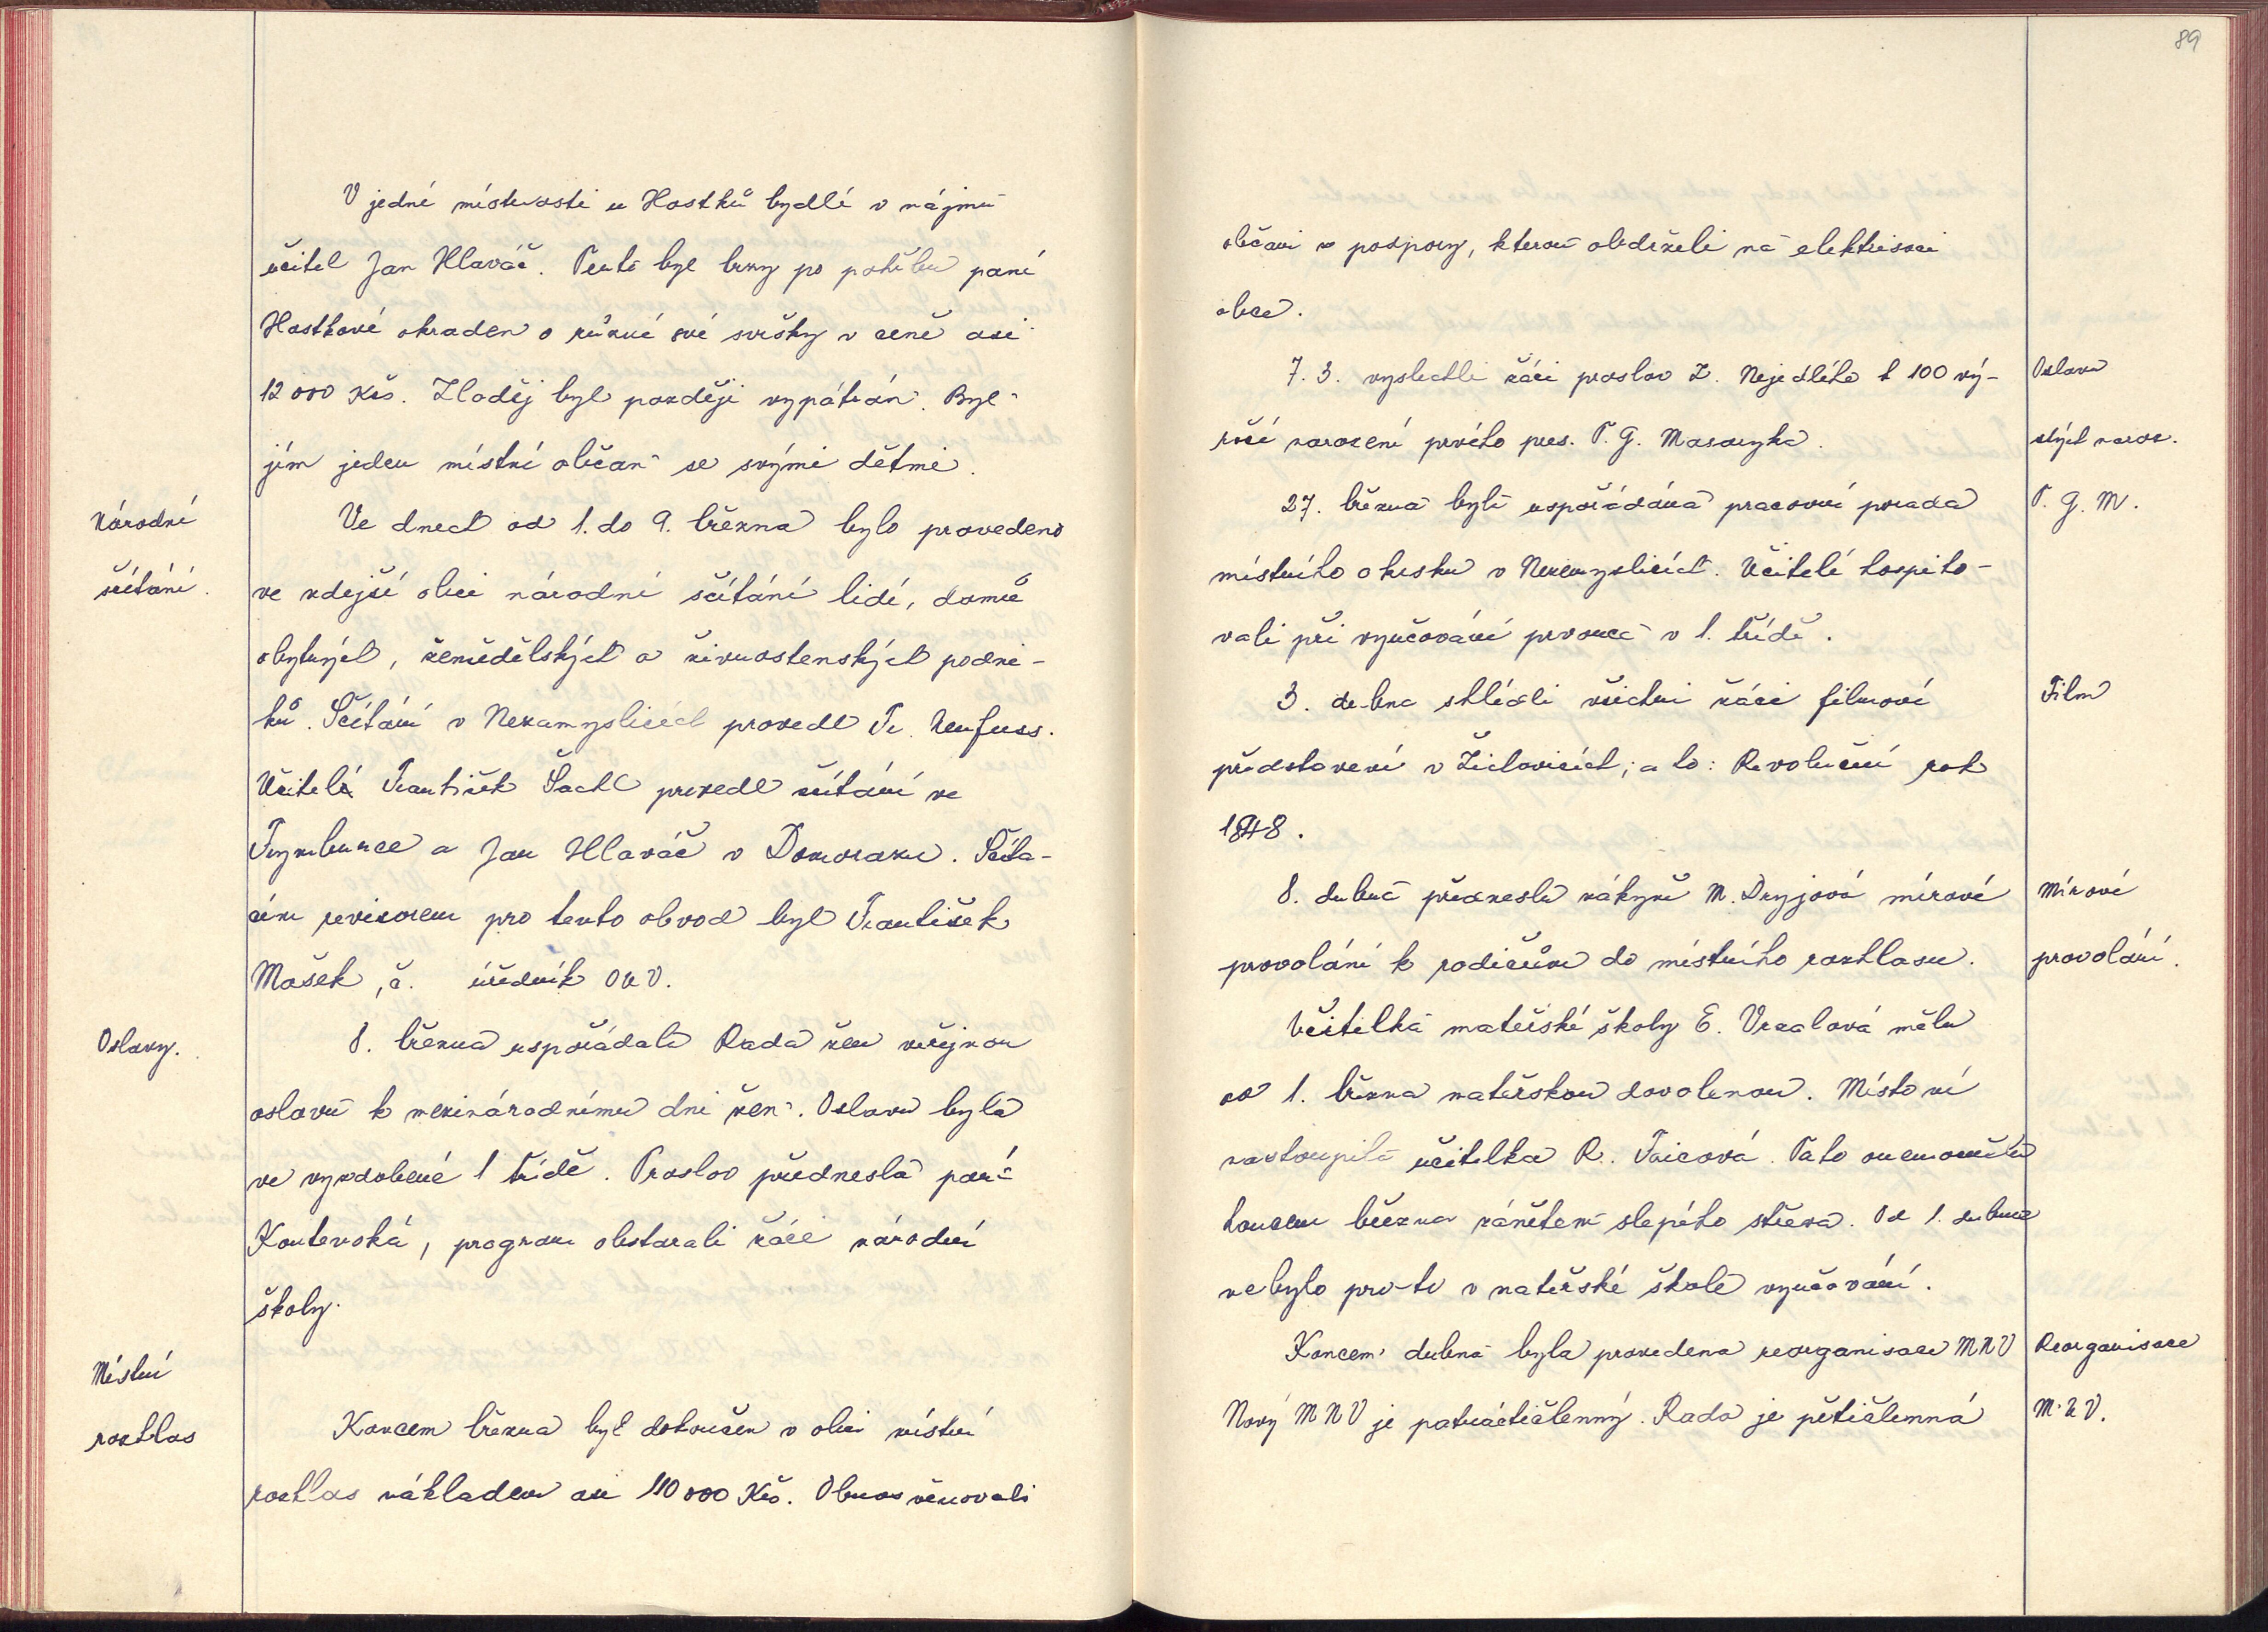 V jedné místnosti u Hostků bydlí v nájmu
učitel Jan Hlaváč. Tento byl brzy po pohřbu paní
Hostkové okraden o různé své svršky v ceně asi
12 000 Kčs. Zloděj byl později vypátrán. Byl
jím jeden místní občan se svými dětmi.
Národní
sčítání.
Ve dnech od 1. do 9. března bylo provedeno
ve zdejší obci národní sčítání lidí, domů
obytných, zemědělských a živnostenských podni-
ků. Sčítání v Nezamyslicích provedl Fr. Neufuss.
Učitelé František Šachl provedl sčítání ve
a Jan Hlaváč v Domorazu. Sčíta-
cím revisorem pro tento obvod byl František
Mašek, č. úředník ONV.
Oslavy.
8. března uspořádala Rada žen veřejnou
oslavu k mezinárodnímu dni žen. Oslava byla
ve vyzdobené 1 třídě. Proslov přednesla paní
program obstarali žáci národní
školy.
Místní
rozhlas
Koncem března byl dokončen v obci místní
rozhlas nákladem asi 110 000 Kčs. Obnos věnovali
89
občani z podpory, kterou obdrželi na elektrisaci
obce.
7. 3. vyslechli žáci proslov Z. Nejedlého k 100 vý-
ročí narození prvého pres. T. G. Masaryka.
Oslava
stých naroz.
T. G. M.
27. března byla uspořádána pracovní porada
místního okrsku v Nezamyslicích. Učitelé hospito-
vali při vyučování prvouce v 1. třídě.
3. dubna shlédli všichni žáci filmové
Film
představení v Žichovicích; a to: Revoluční rok
1848.
8. dubna přednesla žákyně M. Dryjová mírové
Mírové
provolání k rodičům do místního rozhlasu.
provolání.
Učitelka mateřské školy E. měla
od 1. března mateřskou dovolenou. Místo ní
nastoupila učitelka R. Tato onemocněla
koncem března zánětem slepého střeva. Od 1. dubna
nebylo proto v mateřské škole vyučování.
Koncem dubna byla provedena reorganisace MNV
Reorganisace
Nový MNV je patnáctičlenný. Rada je pětičlenná
MNV.